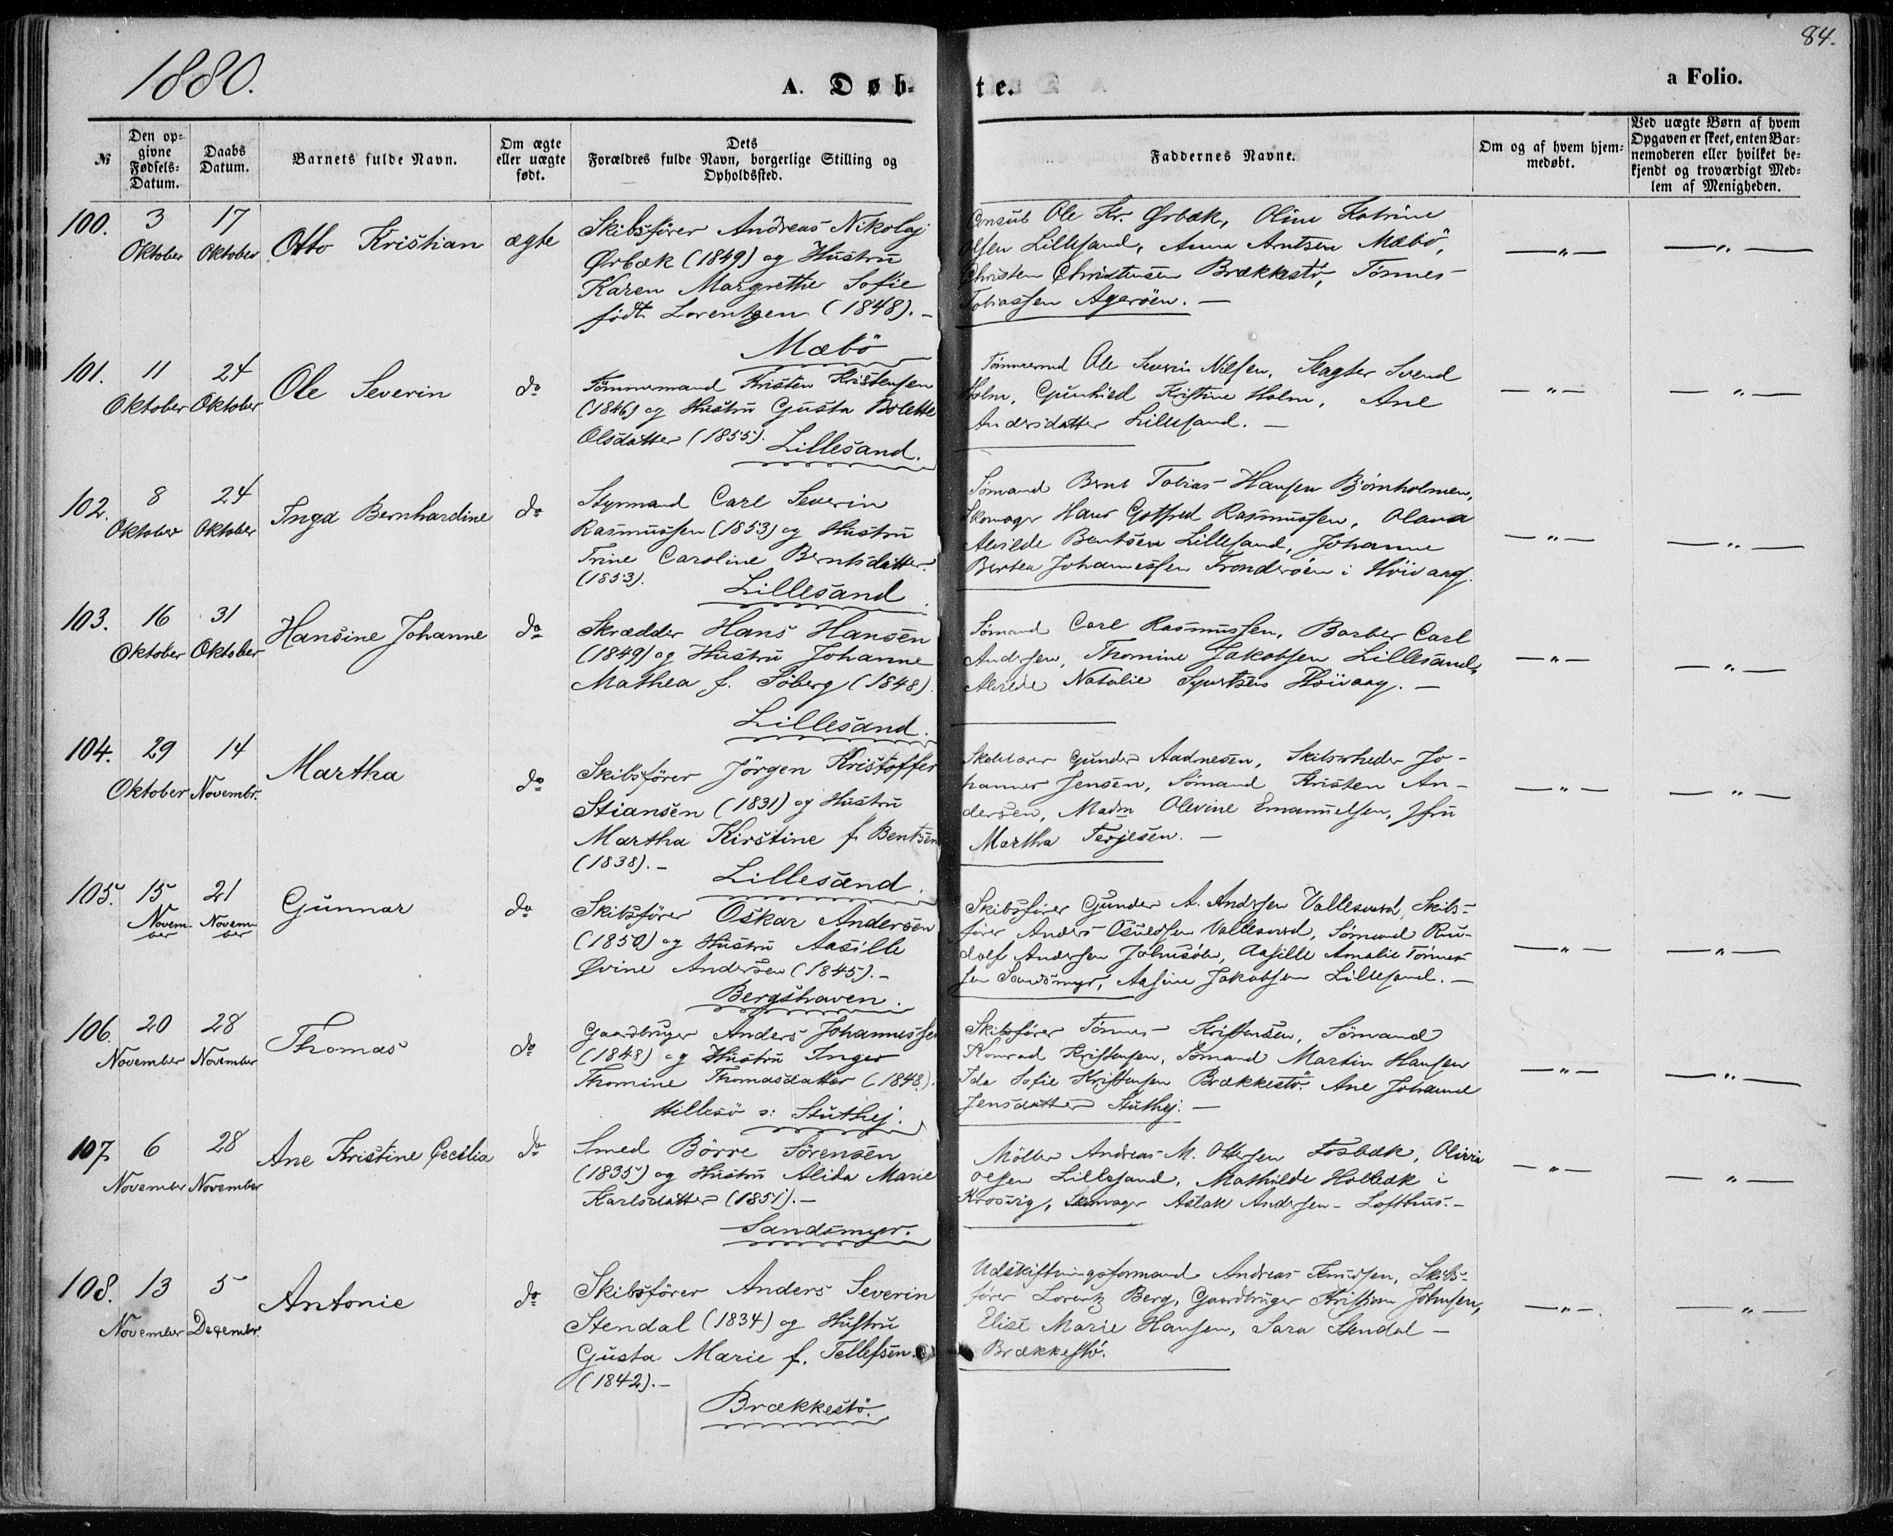 1880.
A. Døb-
te.
84.
a Folio.
№
Den op-
givne
Fødsels-
Datum.
Daabs
Datum.
Barnets fulde Navn.
Om ægte
eller uægte
født.
Dets
Forældres fulde Navn, borgerlige Stilling og
Opholdssted.
Faddernes Navne.
Om og af hvem hjem-
medøbt.
Ved uægte Børn af hvem
Opgaven er skeet, enten Bar-
nemoderen eller hvilket be-
kjendt og troværdigt Med-
lem af Menigheden.
100. 3 17
Oktober Oktober
Otto Kristian
ægte
Skibsfører Andreas Nikolaj
Ørbæk (1849) og Hustru
Karen Margrethe Sofie
født Lorentzen (1848). -
Mæbö
Consul Ole Kr. Ørbæk, Oline Katrine
Olsen Lillesand, Anna Arntsen Mæbö,
Christen Christensen Brækkestö, Tönnes
Tobiassen Ageröen. -
— „ —
— „ —
101. 11 24
Oktober Oktober
Ole Severin
do
Tømmermand Kristen Kristensen
(1846) og Hustru Gusta Bolette
Olsdatter (1855).
Lillesand.
Tømmermd Ole Severin Nilsen, Slagter Svend
Holm, Gunhild Kristine Holm, Ane
Andersdatter Lillesand. -
— „ —
— „ —
102. 8 24
Oktober Oktober
Inga Bernhardine
do
Styrmand Carl Severin
Rasmussen (1853) og Hustru
Trine Caroline Berntsdatter.
(1853).
Lillesand.
Sömand Bernt Tobias Hansen Bjørnholmen,
Skomager Hans Gotfred Rasmussen, Olava
Alvilde Bentsen Lillesand, Johanne
Bertea Johannessen Tronderöen i Höivaag.
— „ —
— „ —
103. 16 31
Oktober Oktober
Hansine Johanne
do
Skrædder Hans Hansen
(1849) og Hustru Johanne
Mathea f. Söberg (1848).
Lillesand.
Sömand Carl Rasmussen, Barber Carl
Andersen, Thomine Jakobsen Lillesand,
Natalie Höivaag. -
— „ —
— „ —
104. 29 14
Oktober Novembr.
Martha
do
Skibsfører Jörgen Kristoffer
Stiansen (1831) og Hustru
Martha Kirstine f. Bentsen
(1838). -
Lillesand.
Gunder Aadnesen, Skibsrheder Jo-
hannes Jensen, Sömand Kristen An-
dersen, Madm Olevine Emanuelsen, Jfru
Martha Terjesen. -
— „ —
— „ —
105. 15 21
Novem-
ber
Novem-
ber
Gunnar
do
Skibsfører Oskar Andersen
(1850) og Hustru Aasille
Øvine Andersen (1845). -
Bergshaven.
Skibsfører Gunder A. Andersen Vallesverd, Skibs-
fører Anders Vallesverd, Sömand Ru-
dolf Andersen, Aasille Amalie Tönnes-
sen Sandsmyr, Aasine Jakobsen Lillesand. -
— „ —
— „ —
106. 20 28
November November
Thomas
do
Gaardbruger Anders Johannessen
(1848) og Hustru Inger
Thomine Thomasdatter (1848).
Hillesö s: Stuthej.
Skibsfører Tönnes Kristensen, Sömand
Konrad Kristensen, Sömand Martin Hansen
Ida Sofie Kristensen Brækkestö. Ane Johanne
Jensdatter Stuthej. -
— „ —
— „ —
107. 6 28
November November
Ane Kristine Cecilia
do
Smed Börre Sörensen
(1835) og Hustru Alida Marie
Karlsdatter (1851). -
Sandsmyr.
Møller Andreas M. Ottersen Fosbæk, Olivia
Olsen Lillesand, Mathilde Holbæk i
Krosvig, Skomager Aslak Andersen - Lofthus. -
— „ —
— „ —
108. 13 5
November Decembr.
Antonie
do
Skibsfører Anders Severin
Stendal (1834) og Hustru
Gusta Marie f. Tellefsen.
(1842). -
Brækkestö.
Udskiftningsformand Andreas Knudsen, Skibs-
fører Lorentz Berg, Gaardbruger Kristian Johnsen,
Elise Marie Hansen, Sara Stendal -
Brækkestö.
— „ —
— „ —